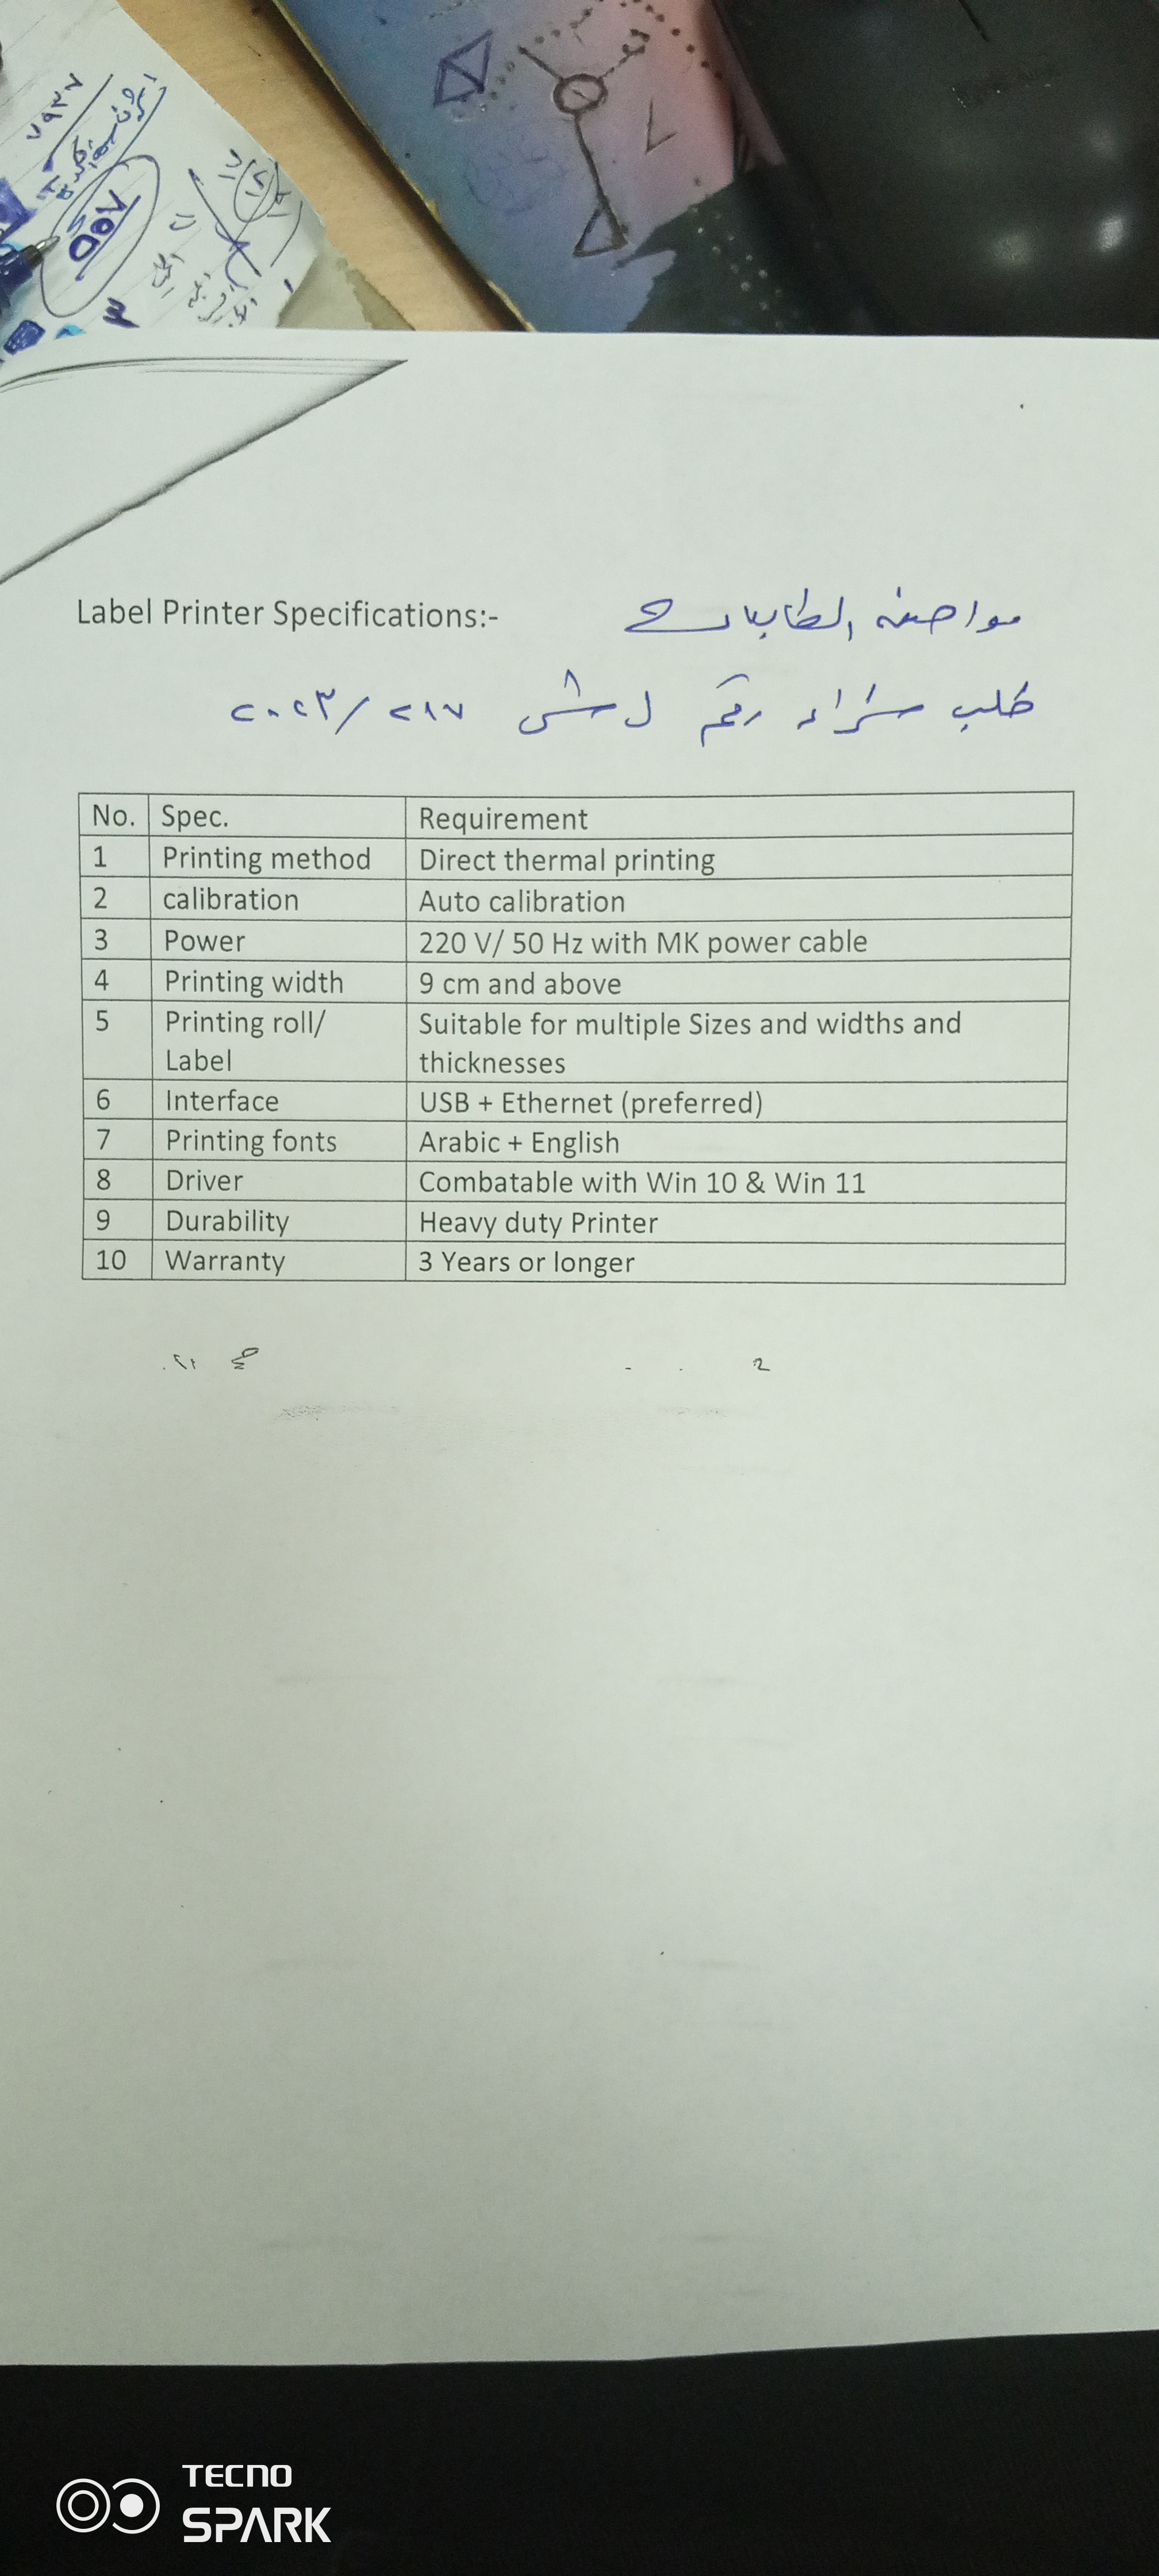 ٧٩٣٧
Label Printer Specifications:-
مواصفة الطابعات
طلب شراء رقم ل ش ٢٨٧ / ٢٠٢٣
No. Spec. Requirement
1 Printing method Direct thermal printing
2 calibration Auto calibration
3 Power 220 V/ 50 Hz with MK power cable
4 Printing width 9 cm and above
5 Printing roll/ Label Suitable for multiple Sizes and widths and thicknesses
6 Interface USB + Ethernet (preferred)
7 Printing fonts Arabic + English
8 Driver Combatable with Win 10 & Win 11
9 Durability Heavy duty Printer
10 Warranty 3 Years or longer
TECNO
SPARK